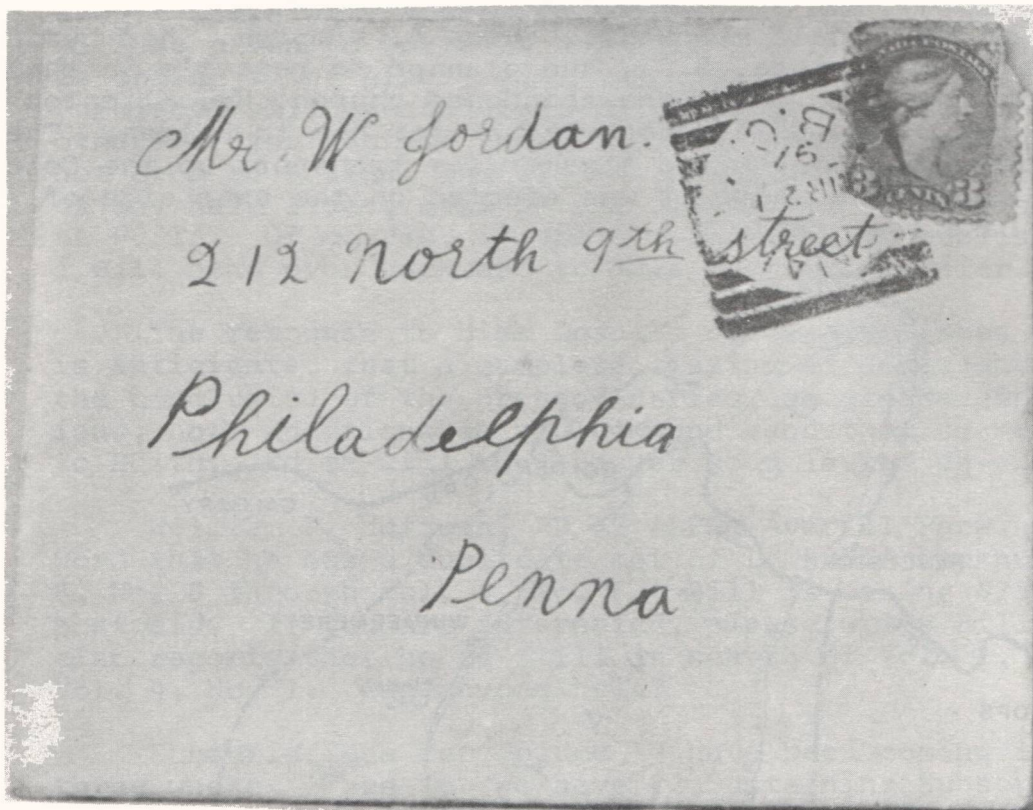 Mr. W Jordan.
212 North 9th street
Philadelphia
Penna